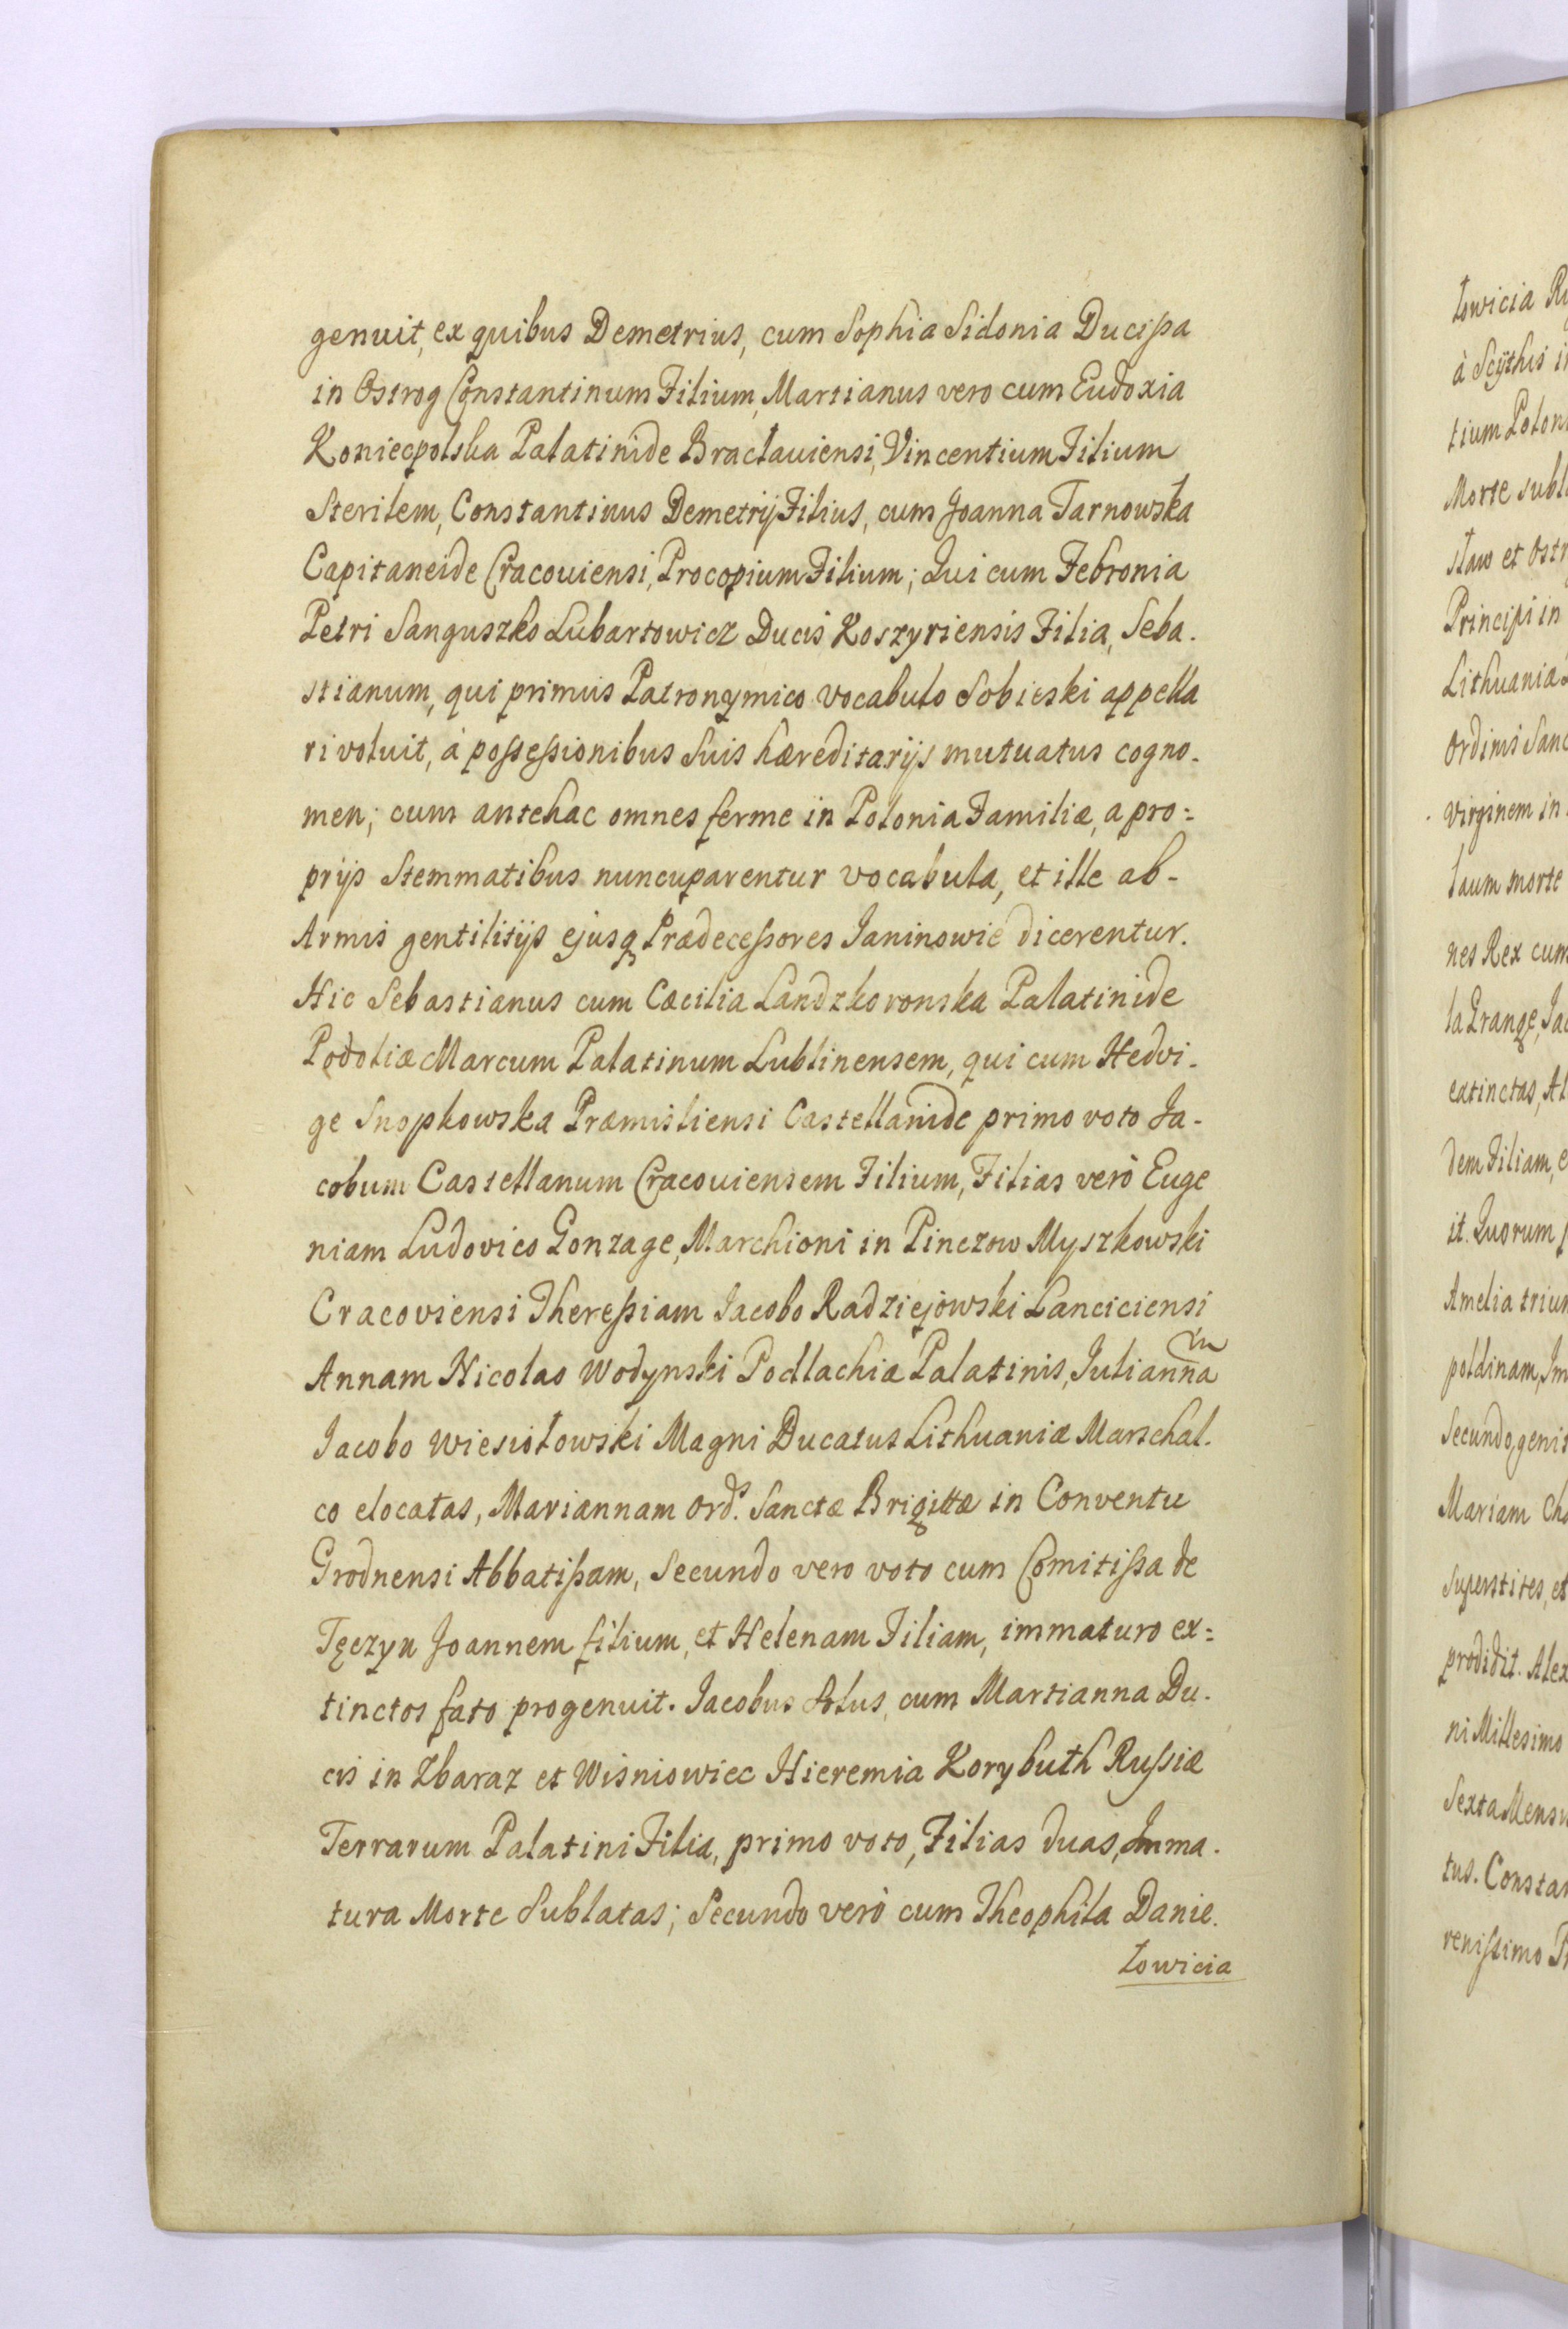 genuit, ex quibus Demetrius, cum Sophia Sidonia Ducißa
in Ostrog Constantinum Filium, Martianus vero cum Eudoxia
Koniecpolska Palatinide Bracłauiensi, Vincentium Filium
Sterilem, Constantinus Demetrij Filius, cum Joanna Tarnowska
Capitaneide Cracouiensi, Procopium Filium; Qui cum Febronia
Petri Sanguszko Lubartowicz Ducis Koszyriensis Filia, Seba-
stianum, qui primus Patronymico vocabulo Sobieski appella
ri voluit, à poßeßionibus Suis hæreditarijs mutuatus cogno-
men; cum antehac omnes ferme in Polonia Familiæ, a pro=
prijs Stemmatibus nuncuparentur vocabula, et ille ab-
Armis gentilitijs ejusq Prædeceßores Janinowie dicerentur.
Hic Sebastianus cum Cæcilia Landzkoronska Palatinide
Podoliæ Marcum Palatinum Lublinensem, qui cum Hedvi-
ge Snopkowska Præmisliensi Castellanide primo voto Ja-
cobum Castellanum Cracouiensem Filium, Filias verò Euge
niam Ludovico Gonzage, Marchioni in Pinczow Myszkowski
Cracoviensi Thereßiam Jacobo Radziejowski Lanciciensi
Annam Nicolao Wodynski Podlachiæ Palatinis, Juliannam
Jacobo Wiesiołowski Magni Ducatus Lithuaniæ Marschal-
co elocatas, Mariannam Ord.s Sanctæ Brigittæ in Conventu
Grodnensi Abbatißam, Secundo vero voto cum Comitißa de
Tęczyn Joannem filium, et Helenam Filiam, immaturo ex=
tinctos fato progenuit. Jacobus Solus, cum Martianna Du-
cis in Zbaraz et Wisniowiec Hieremia Korybuth Rußiæ
Terrarum Palatini Filia, primo voto, Filias duas, Imma-
tura Morte Sublatas; Secundo verò cum Theophila Danie-
łowicia
łowicia
à Scÿthis
tium
Morte
sław et
Principi in
Lithuaniæ
Ordinis
virginem in
morte
nes Rex cum
la Grange,
extinctas,
dem Filiam,
it. Quorum
Amelia
poldinam,
Secundo,
Mariam
Superstites, et
prodidit.
ni Millesimo
Sexta
tus.